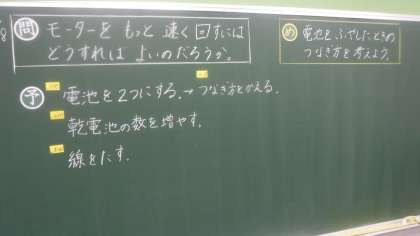 8
問 モーターをもっと速く回すには
どうすればよいのだろうか。
め 電池をふやしたときの
つなぎ方を考えよう。
予 電池を2つにする。→つなぎ方をかえる。
乾電池の数を増やす。
線をたす。